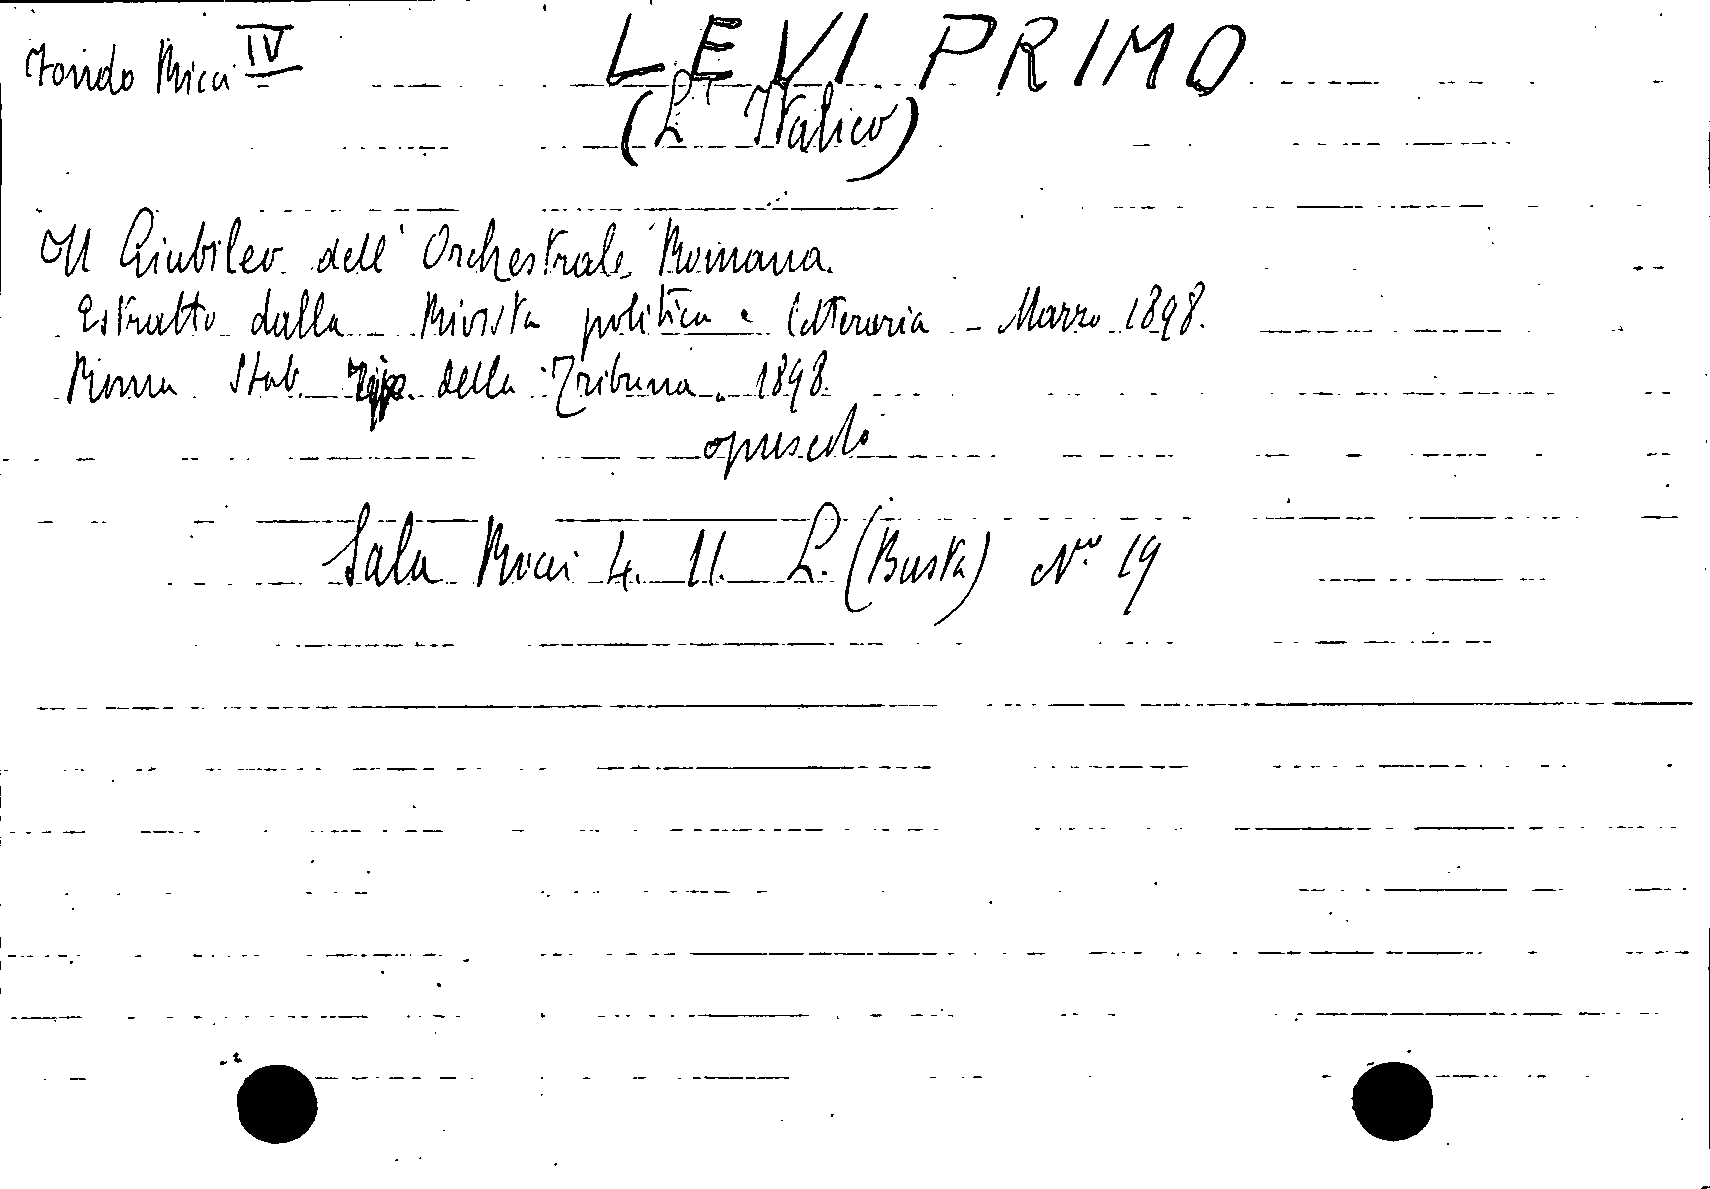 Fondo Ricci IV
LEVI PRIMO
(L'Italico)
Il Giubileo dell'Orchestrale Romana.
Estratto dalla Rivista politica e letteraria - Marzo 1898.
Roma Stab. Tip. della Tribuna. 1898.
opuscolo
Sala Ricci 4. 11. L. (Busta) No 19